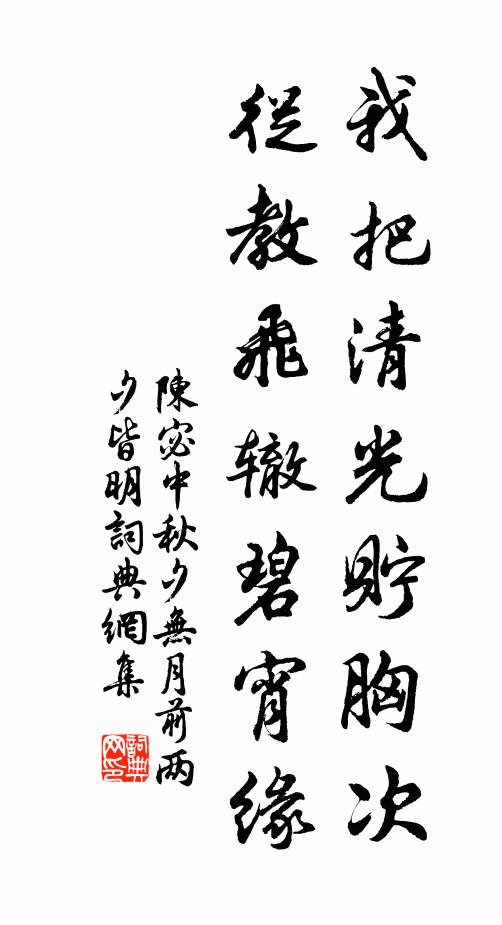 我把清光貯胸次
從教飛轍碧宵緣
陳宓中秋夕無月前两
夕皆明詞典網集
詞典
网印